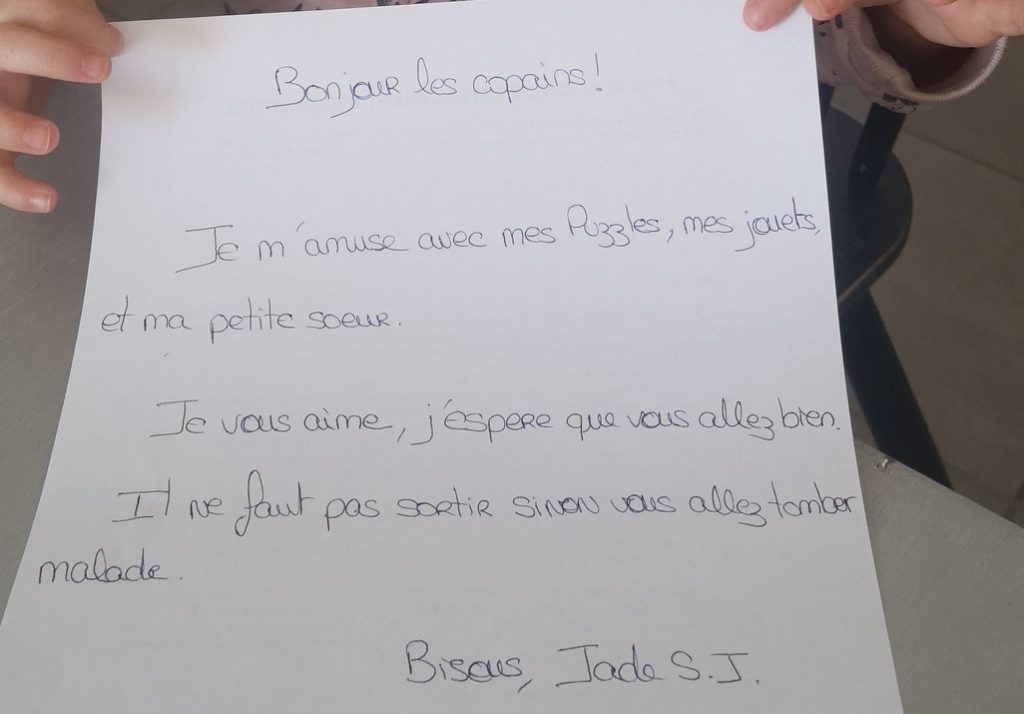 Bonjour les copains!
Je m'amuse avec mes Puzzles, mes jouets,
et ma petite soeur.
Je vous aime, j'éspere que vous allez bien.
Il ne faut pas sortir sinon vous allez tomber
malade.
Bisous, Jade S.J.